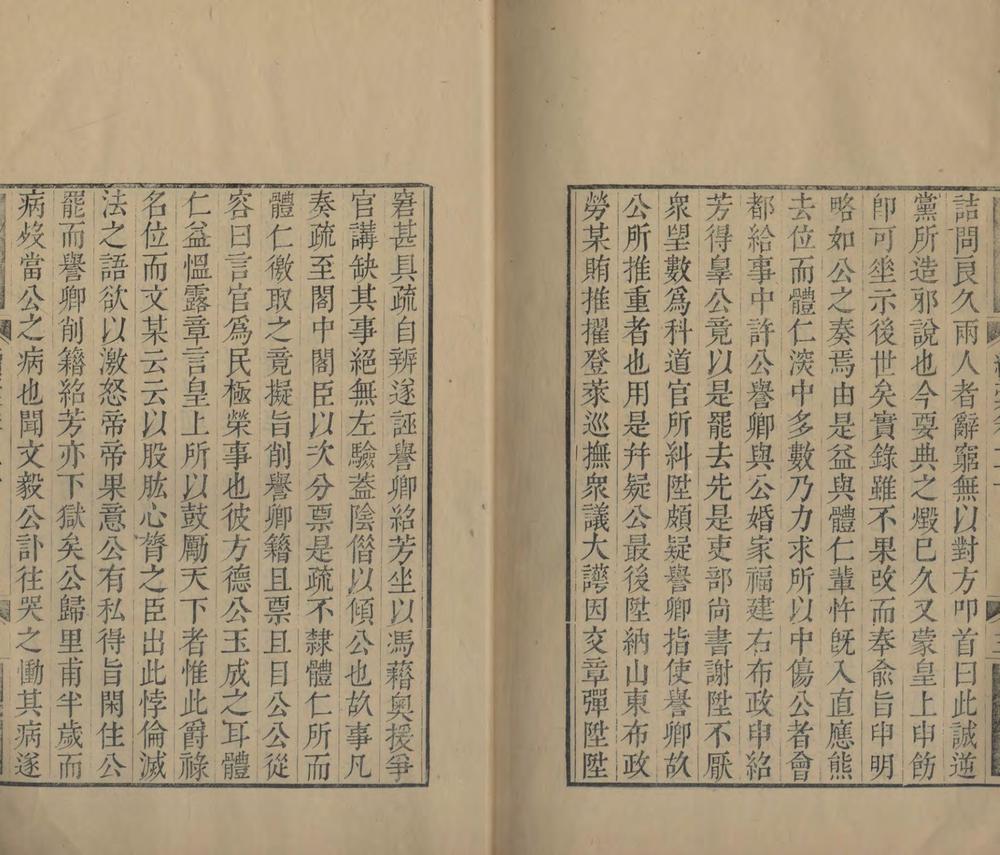 詰問良久兩人者辭窮無以對方叩首曰此誠逆
黨所造邪說也今要典之燬已久又蒙皇上申飭
卽可垂示後世矣實錄雖不果改而奉俞旨申明
略如公之奏焉由是益與體仁輩忤旣入直應熊
去位而體仁深中多數乃力求所以中傷公者會
都給事中許公譽卿與公婚家福建右布政申紹
芳得辠公竟以是罷去先是吏部尚書謝陞不厭
衆望數為科道官所糾陞頗疑譽卿指使譽卿故
公所推重者也用是幷疑公最後陞納山東布政
勞某賄推擢登萊巡撫衆議大譁因交章彈陞陞
窘甚具疏自辨遂誣譽卿紹芳坐以馮藉奧援爭
官講缺其事絕無左驗葢陰僭以傾公也故事凡
奏疏至閣中閣臣以次分票是疏不隸體仁所而
體仁徼取之竟擬旨削譽卿籍且票且目公公從
容曰言官為民極榮事也彼方德公玉成之耳體
仁益慍露章言皇上所以鼓勵天下者惟此爵祿
名位而文某云云以股肱心膂之臣出此悖倫滅
法之語欲以激怒帝帝果意公有私得旨閑住公
罷而譽卿削籍紹芳亦下獄矣公歸里甫半歲而
病歿當公之病也聞文毅公訃往哭之慟其病遂